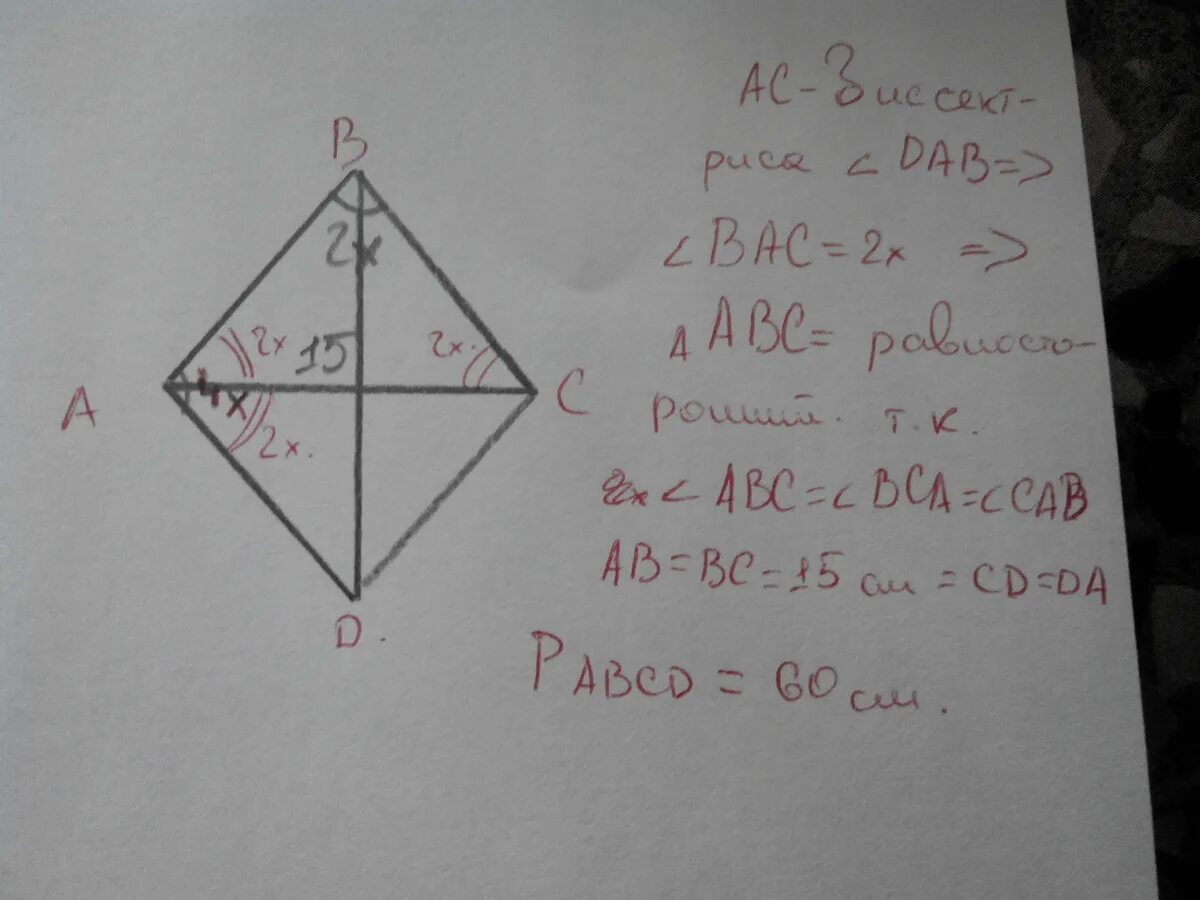 B
2x
2x
15
2x.
A
4x
C
2x.
D.
AC-Биссект-
риса ∠DAB=>
∠BAC=2x =>
△ABC= равносто-
ронний. т.к.
∠ABC=∠BCA=∠CAB
AB=BC=15 см =CD=DA
P ABCD = 60 см.